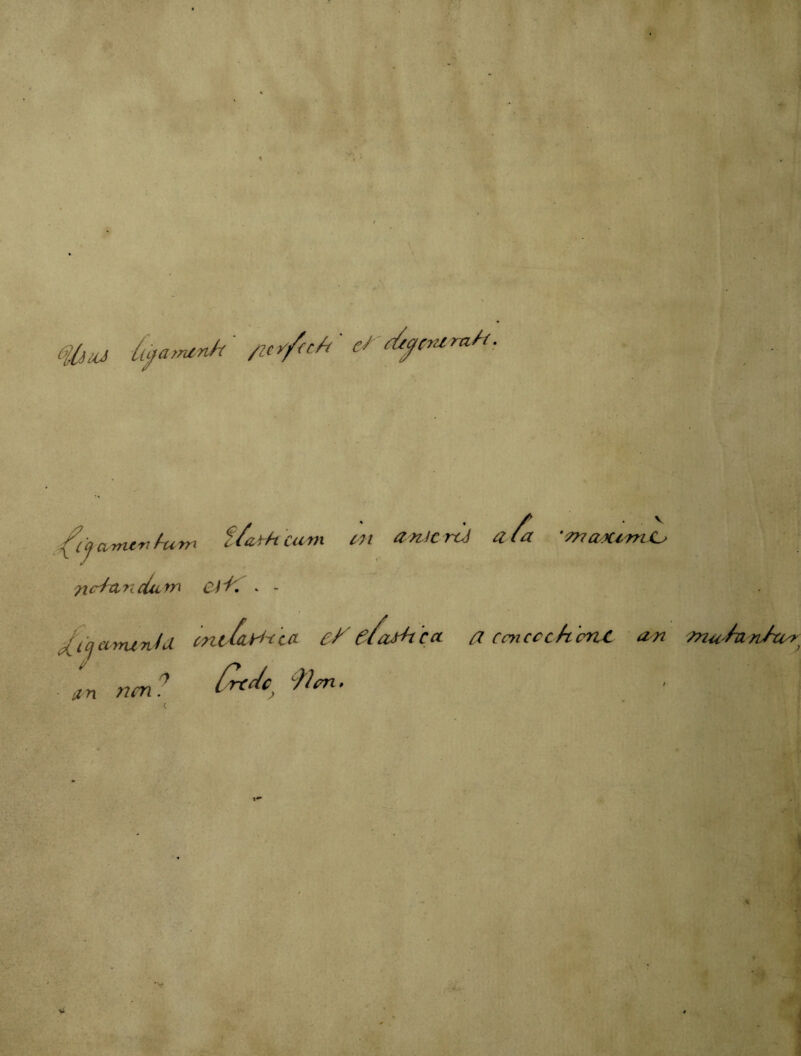 Usus ligamenti perfecti et degenerati.
Ligamentum Elasticum in anseris ala maximé
notandum est. - -
Ligamenta inelastica et elastica a concoctione an mutantur
an non? Credo, Non.